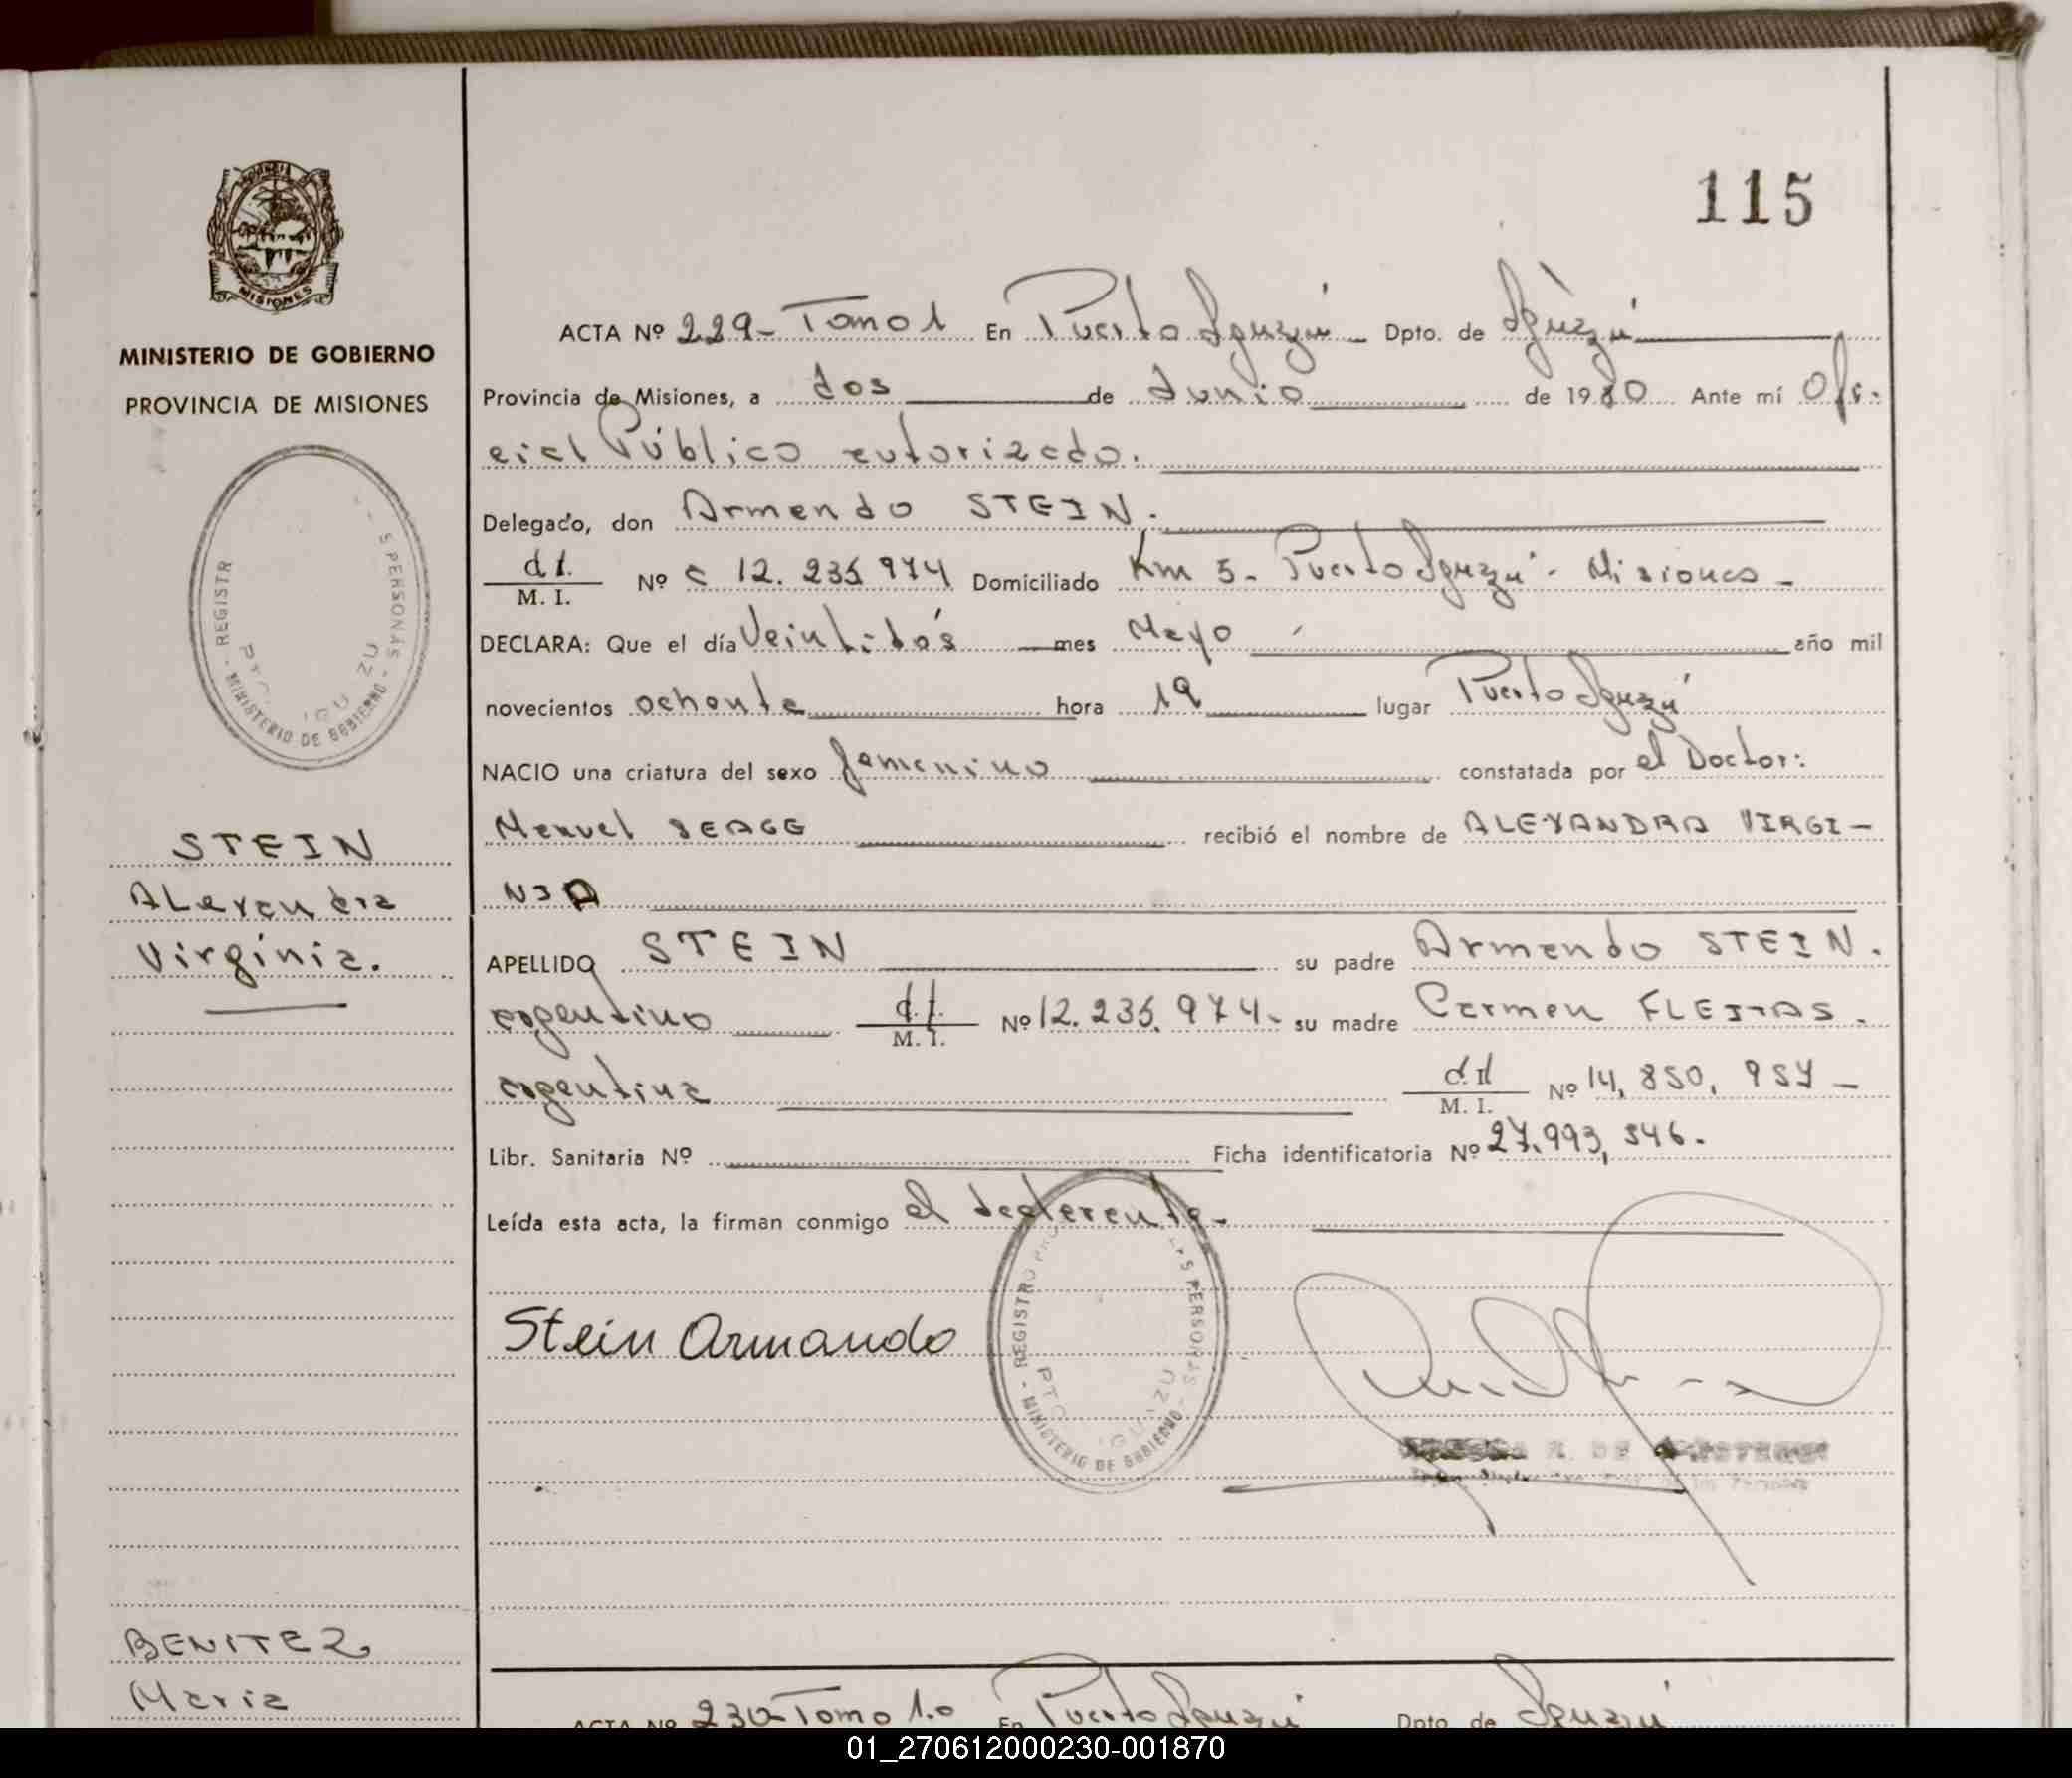 115
MISIONES
MINISTERIO DE GOBIERNO
PROVINCIA DE MISIONES
REGISTR S PERSONAS - MINISTERIO DE GOBIERNO -
PTO. IGU ZU
STEIN
Alexandra
Virginia.
ACTA Nº 229- Tomo 1 En Puerto Iguazú Dpto. de Iguazú
Provincia de Misiones, a dos de Junio de 1980 Ante mí Ofi-
cial Público autorizado.
Delegado, don Armando STEIN.
d.I.
M. I. Nº c 12.235.974 Domiciliado Km 5- Puerto Iguazú - Misiones -
DECLARA: Que el día Veintidós mes Mayo año mil
novecientos ochenta hora 19 lugar Puerto Iguazú
NACIO una criatura del sexo femenino constatada por el Doctor:
Manuel SEAGG recibió el nombre de ALEXANDRA VIRGI-
NIA
APELLIDO STEIN su padre Armando STEIN.
argentino d.I. M. I. Nº 12.235.974- su madre Carmen FLEITAS.
argentina d.I M. I. Nº 14,850,957 -
Libr. Sanitaria Nº Ficha identificatoria Nº 27.993,546.
Leída esta acta, la firman conmigo el declarante-
Stein Armando
REGISTRO S PERSONAS - MINISTERIO DE GOBIERNO -
PTO IGUAZU
BENITEZ
Maria
ACTA Nº 230-Tomo 1.o En Puerto Iguazú Dpto. de Iguazú
01_270612000230-001870